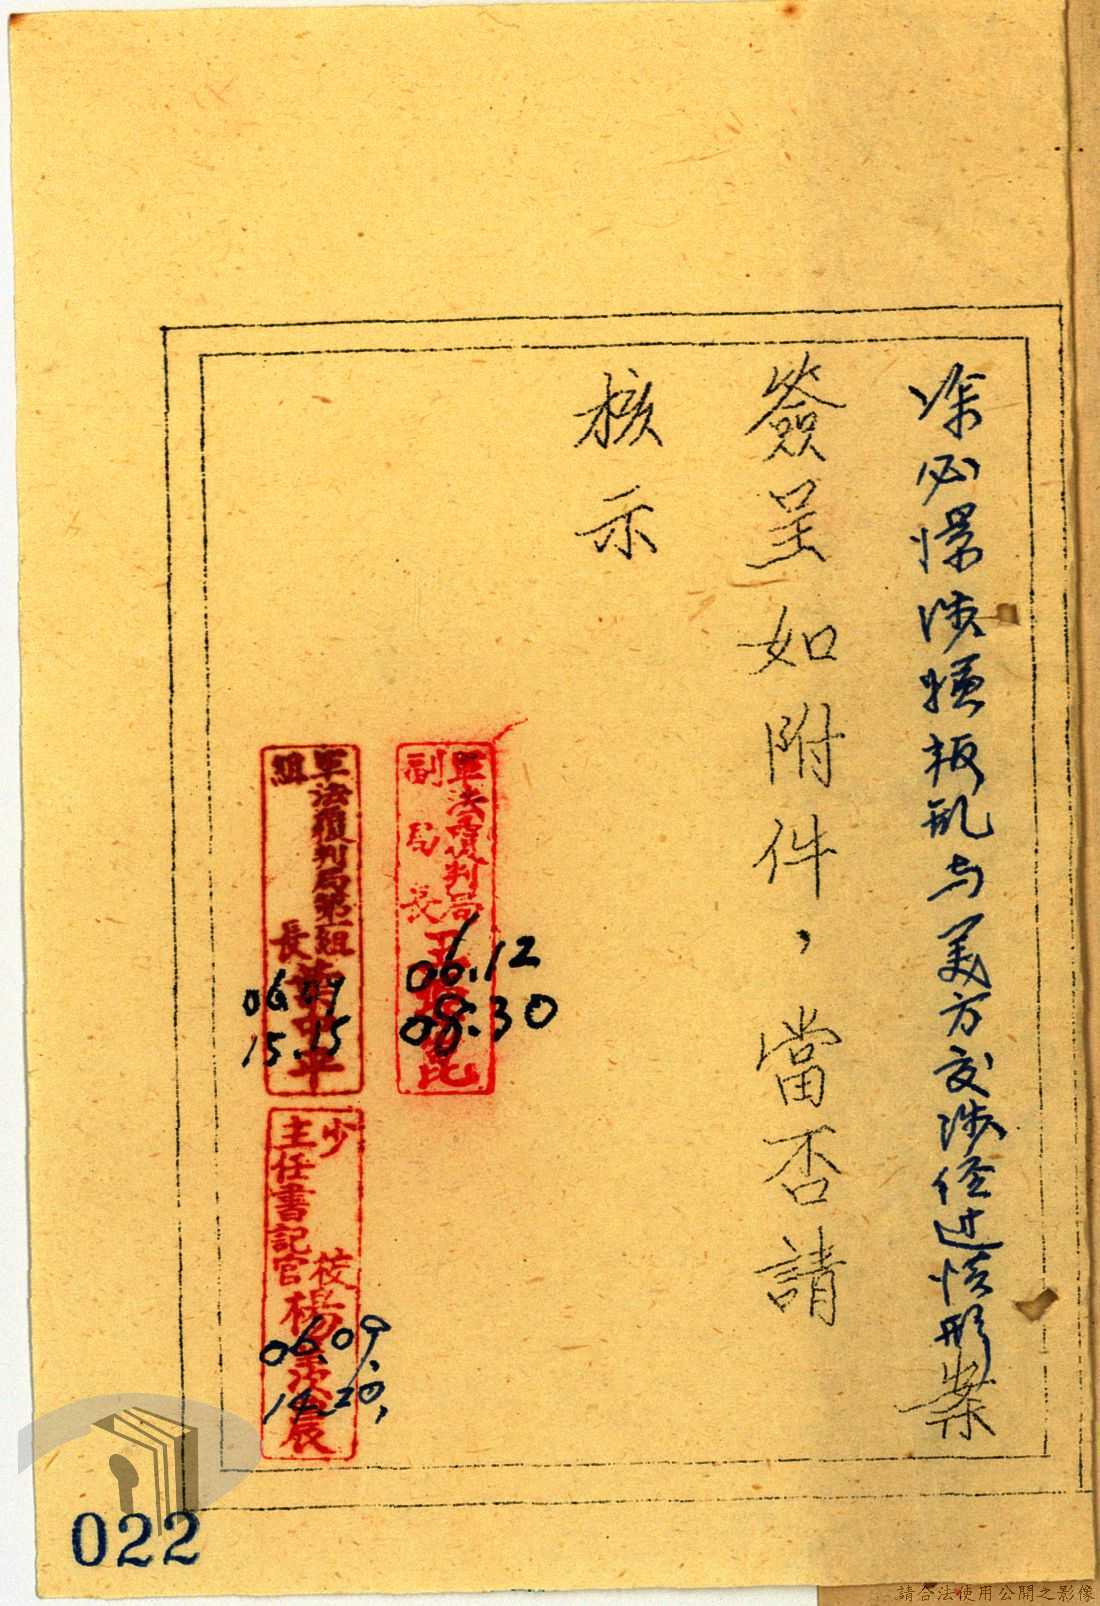 涂必憬涉嫌叛乱与美方交涉经过情形案
簽呈如附件，當否請
核示
軍法覆判局
副局長
06.12
08.30
軍法覆判局第一組
組長
06.09
15.15
少校
主任書記官
06.09.
14.20,
022
請合法使用公開之影像